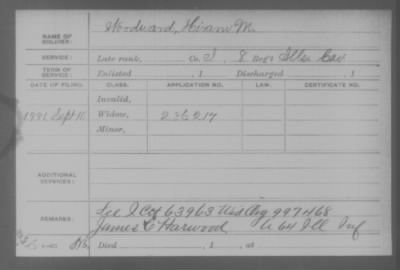 NAME OF SOLDIER: Woodward, Hiram M.
SERVICE: Late rank, Co. I, 8 Reg't Ills Cav
TERM OF SERVICE: Enlisted , 1 Discharged , 1
DATE OF FILING. CLASS. APPLICATION NO. LAW. CERTIFICATE NO.
Invalid,
1881 Sept 15 Widow, 236217
Minor,
ADDITIONAL SERVICES:
REMARKS: See I Cof 63963 Usd Chg 997468
James E Harwood 64 Ill Inf
Died , 1 , at